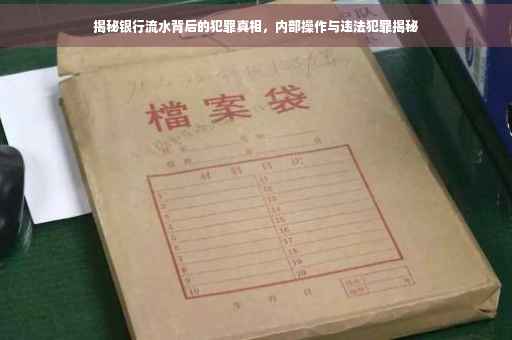 揭秘银行流水背后的犯罪真相，内部操作与违法犯罪揭秘
檔案袋
材料目次
1 11
2 12
3 13
4 14
5 15
6 16
7 17
8 18
9 19
10 20
年 月 日